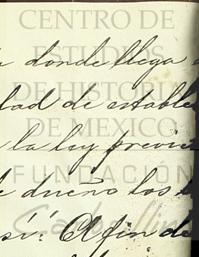 CENTRO DE
ESTUDIOS
DE HISTORIA
DE MEXICO
FUNDACIÓN
a donde llega
dad de estable
la ley previe
dueño los
sí: A fin de